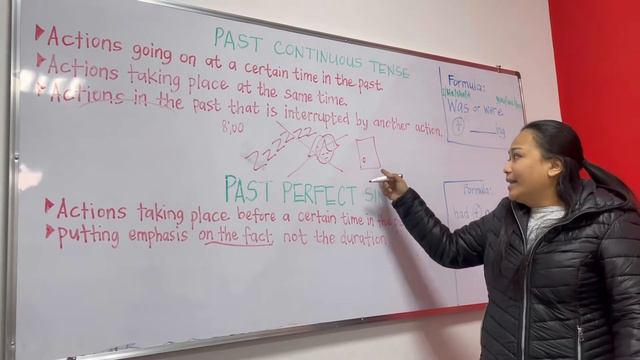 PAST CONTINUOUS TENSE
Actions going on at a certain time in the past.
Actions taking place at the same time.
Actions in the past that is interrupted by another action.
8:00
ZZZZZZZ
PAST PERFECT SI
Actions taking place before a certain time in the
putting emphasis on the fact, not the duration
Formula:
Was or were
+ ____ing
Formula:
had +